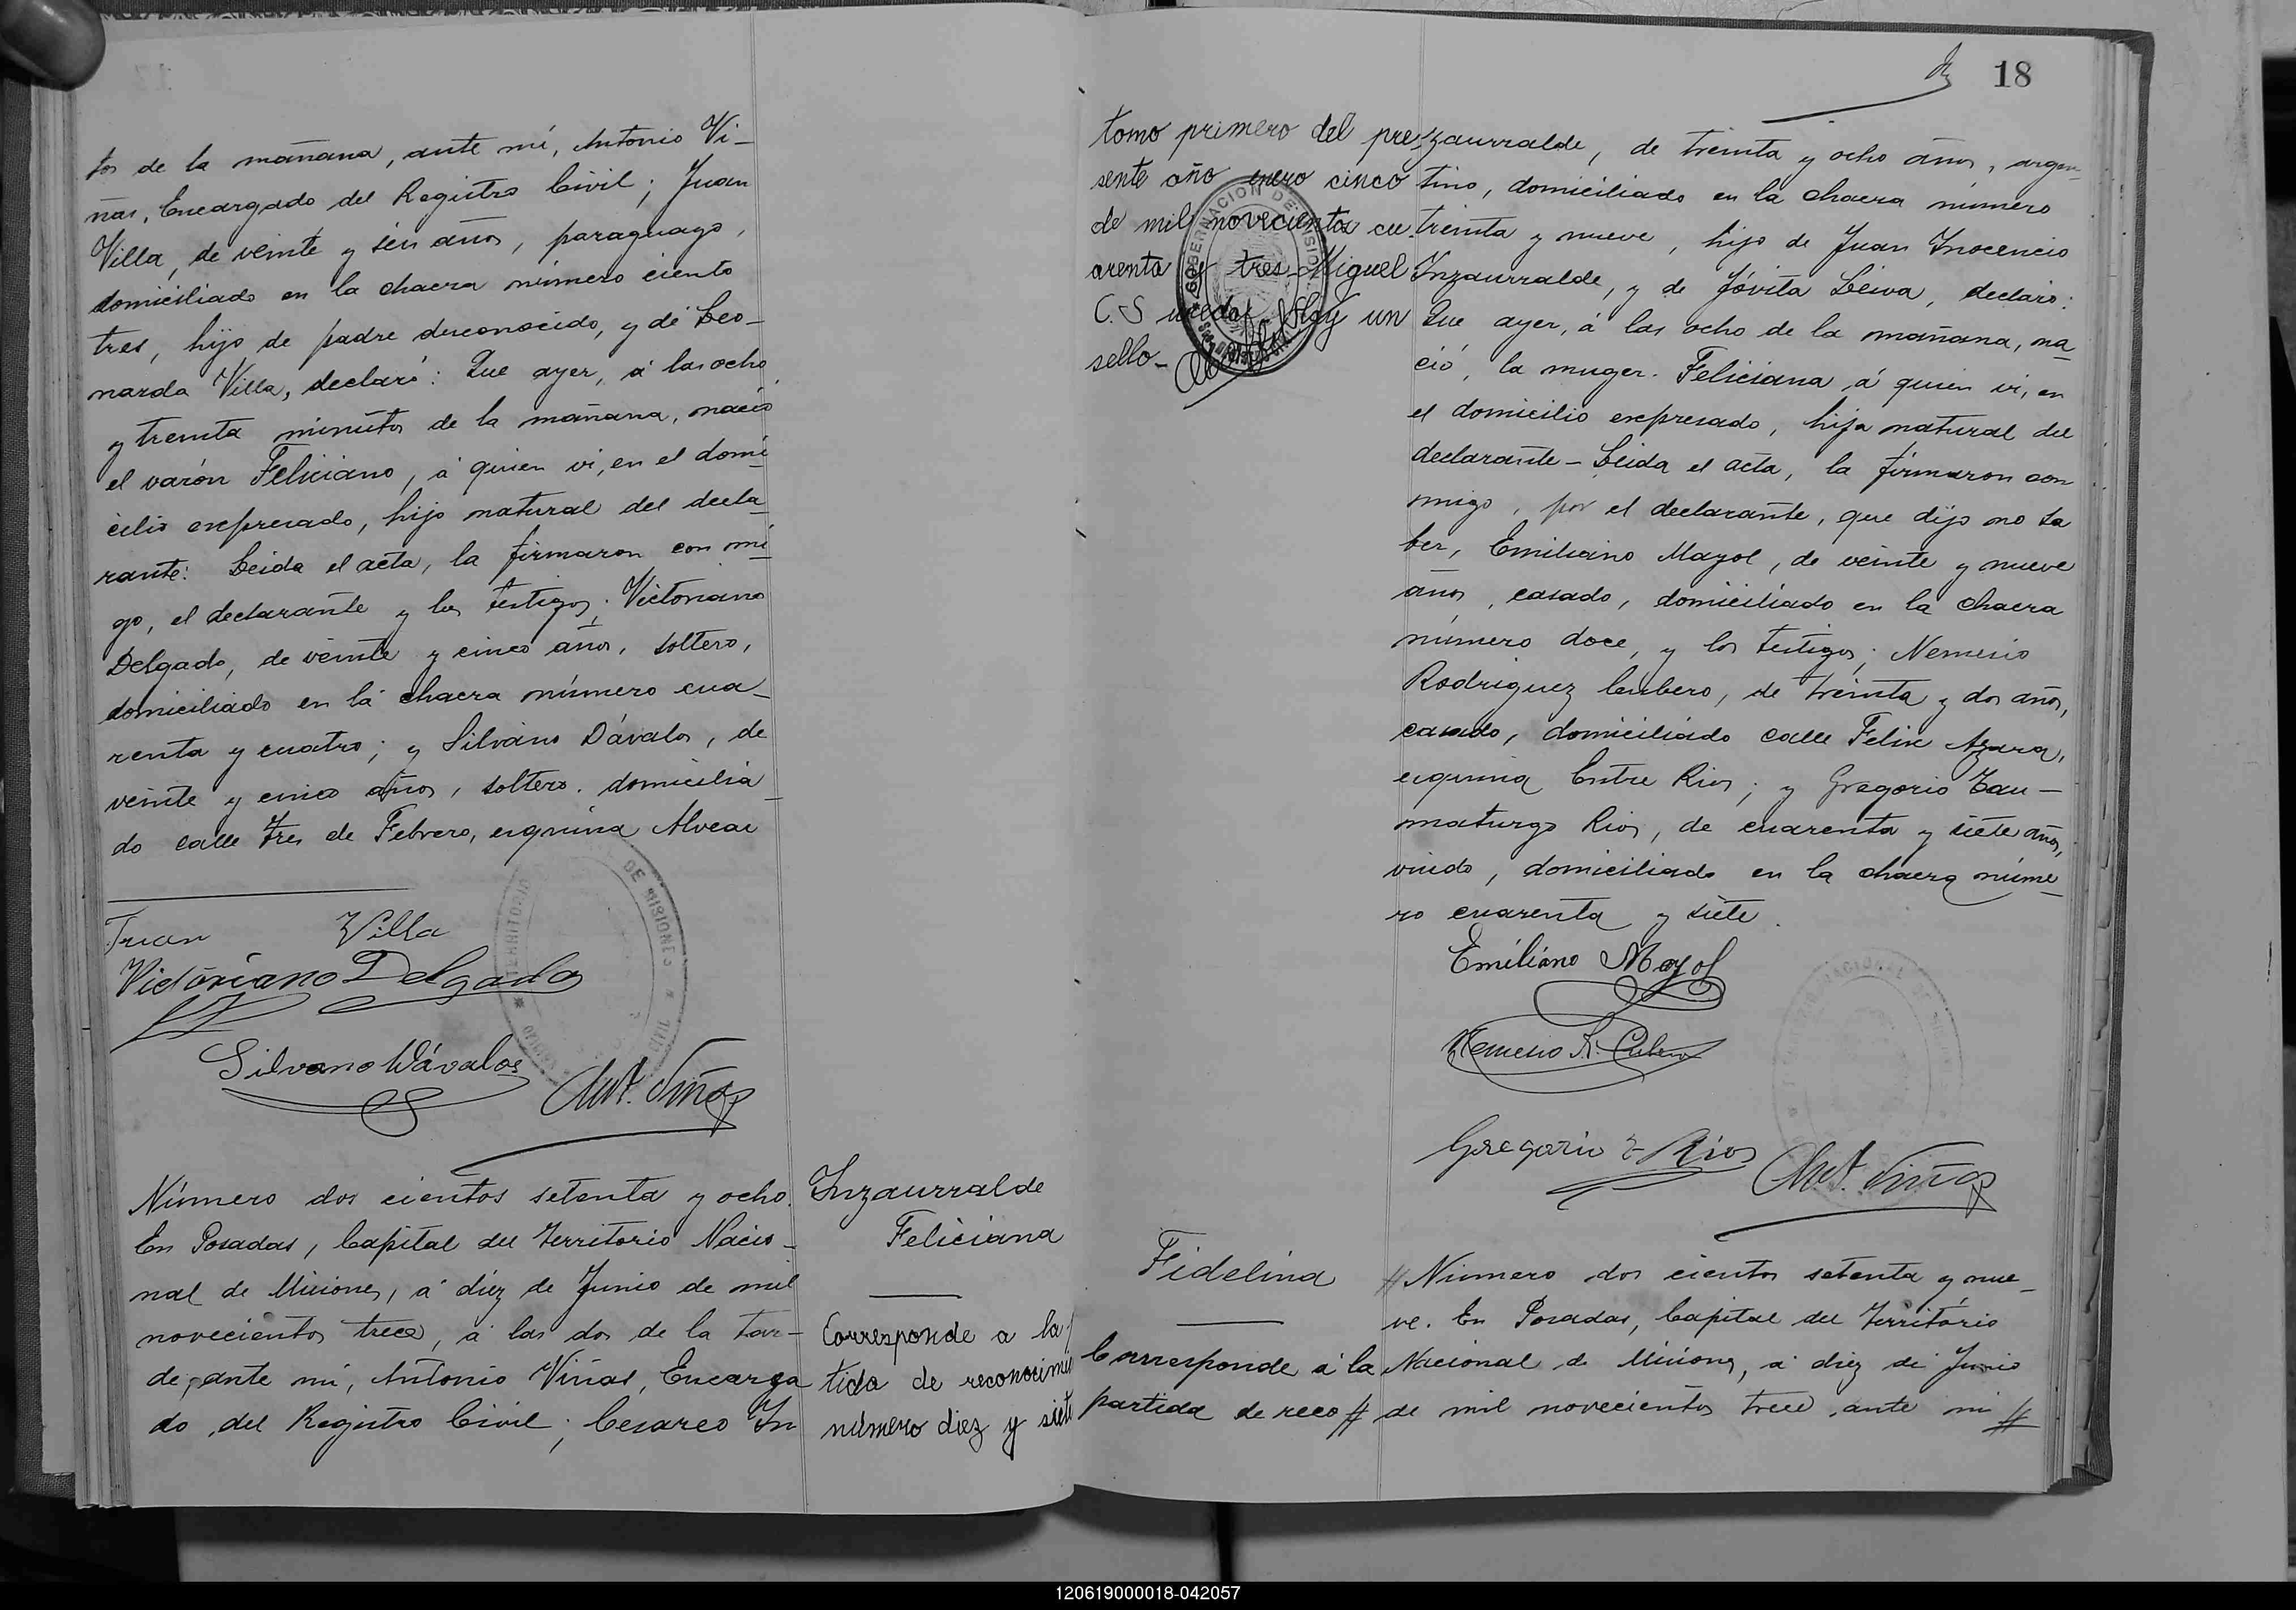 tos de la mañana, ante mí, Antonio Vi-
ñas, Encargado del Registro Civil; Juan
Villa, de veinte y seis años, paraguayo,
domiciliado en la chacra número ciento
tres, hijo de padre desconocido, y de Leo-
narda Villa, declaró: Que ayer, á las ocho
y treinta minutos de la mañana, nació
el varón Feliciano, á quien vi, en el domi-
cilio expresado, hijo natural del decla-
rante: Leida el acta, la firmaron con mi-
go, el declarante y los testigos; Victoriano
Delgado, de veinte y cinco años, soltero,
domiciliado en la chacra número cua-
renta y cuatro; y Silvano Dávalos, de
veinte y cinco años, soltero, domicilia-
do calle Tres de Febrero, esquina Alvear
Juan Villa
Victoriano Delgado
Silvano Dávalos
Ant. Viñas
Número dos cientos setenta y ocho.
En Posadas, Capital del Territorio Nacio-
nal de Misiones, á diez de Junio de mil
novecientos trece, á las dos de la tar-
de, ante mí, Antonio Viñas, Encarga
do del Registro Civil; Cesareo In
Inzaurralde
Feliciana
Corresponde a la
tida de reconocimie
número diez y siete
18
tomo primero del pre
sente año enero cinco
de mil novecientos cu
arenta y tres Miguel
C. S Hay un
sello-
GOBERNACION DE MISIONES
zaurralde, de treinta y ocho años, argen-
tino, domiciliado en la chacra número
treinta y nueve, hijo de Juan Inocencio
Inzaurralde, y de Jóvita Leiva, declaró:
Que ayer, á las ocho de la mañana, na-
ció, la muger Feliciana, á quien vi, en
el domicilio expresado, hija natural del
declarante - Leida el acta, la firmaron con
migo, por el declarante, que dijo no sa
ber, Emiliano Mayol, de veinte y nueve
años, casado, domiciliado en la chacra
número doce, y los testigos; Nemesio
Rodriguez Cubero, de treinta y dos años,
casado, domiciliado calle Felix Azara,
esquina Entre Rios; y Gregorio Tau-
maturgo Rios, de cuarenta y siete años,
viudo, domiciliado en la chacra núme-
ro cuarenta y siete.
Emiliano Mayol
Nemesio R. Cubero
Gregorio T Rios
Ant. Viñas
Fidelina
Corresponde á la
partida de reco #
# Número dos cientos setenta y nue-
ve. En Posadas, Capital del Territorio
Nacional de Misiones, á diez de Junio
de mil novecientos trece, ante mi #
120619000018-042057